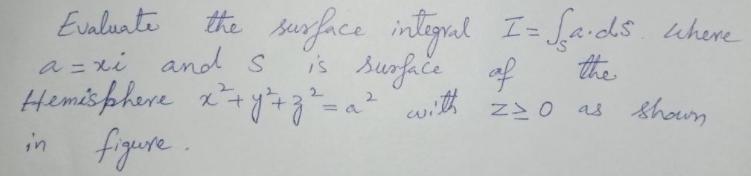 Evaluate the surface integral I = ∫ₛ a·ds. Where
a = xi and S is surface of the
Hemisphere x² + y² + z² = a² with z ≥ 0 as shown
in figure.